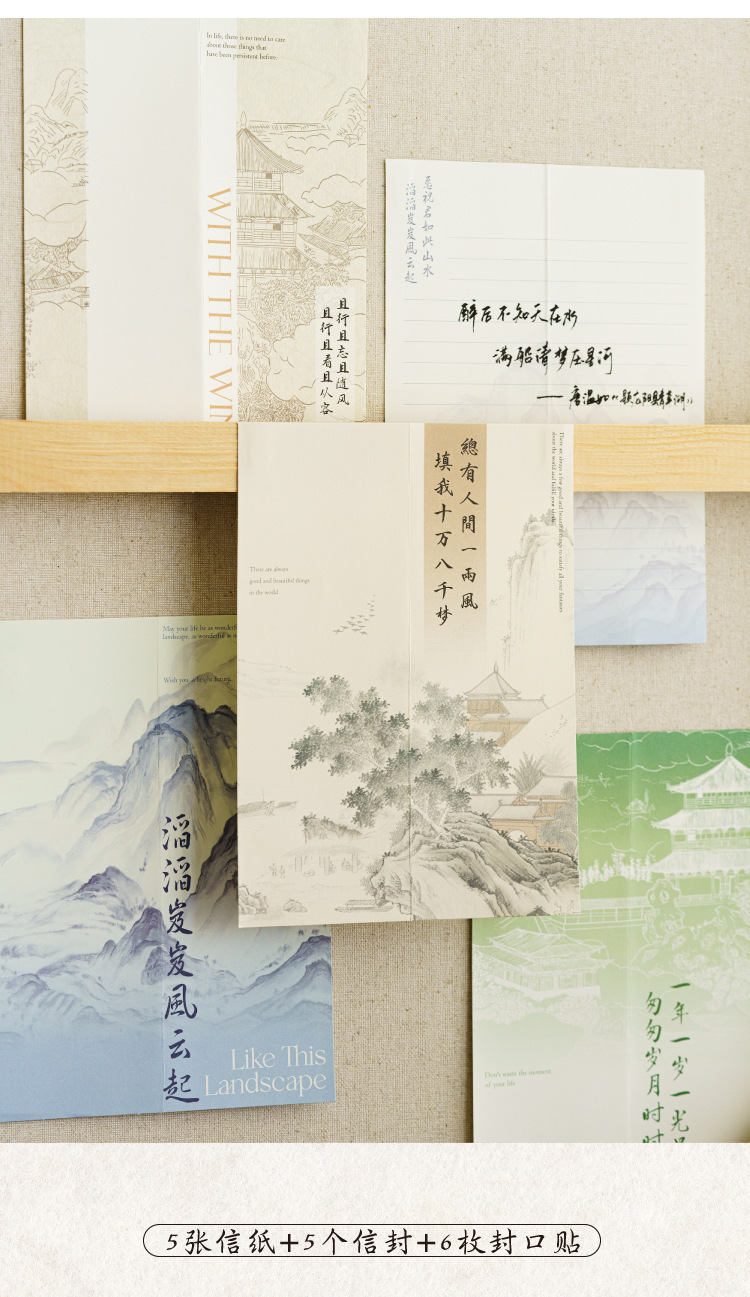 In life, there is no need to care
about those things that
have been persistent before.
WITH THE WIN
且行且忘且随风
且行且看且从容
总祝君如此山水
滔滔岌岌風云起
醉后不知天在水
满船清梦压星河
總有人間一兩風
填我十万八千梦
There are always a few good and beautiful things to satisfy all your fantasies
about the world and
There are always
good and beautiful things
in the world
May your life be as wonderful
landscape, as wonderful
Wish you a bright future
滔滔岌岌風云起
Like This
Landscape
一年一岁一光
匆匆岁月时时
Don't waste the moment
of your life
5张信纸+5个信封+6枚封口贴